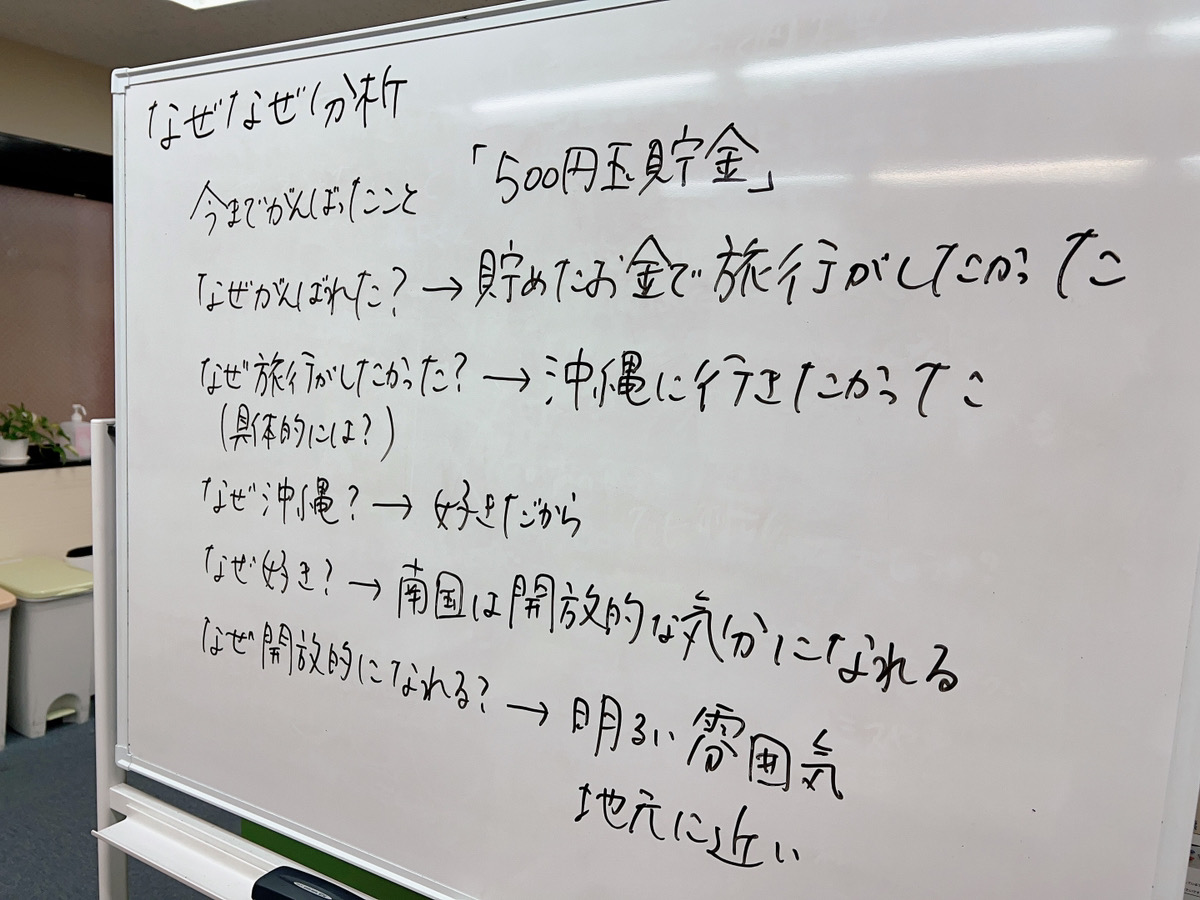 なぜなぜ分析
今までがんばったこと 「500円玉貯金」
なぜがんばれた? → 貯めたお金で旅行がしたかった
なぜ旅行がしたかった? → 沖縄に行きたかった
(具体的には?)
なぜ沖縄? → 好きだから
なぜ好き? → 南国は開放的な気分になれる
なぜ開放的になれる? → 明るい雰囲気
地元に近い